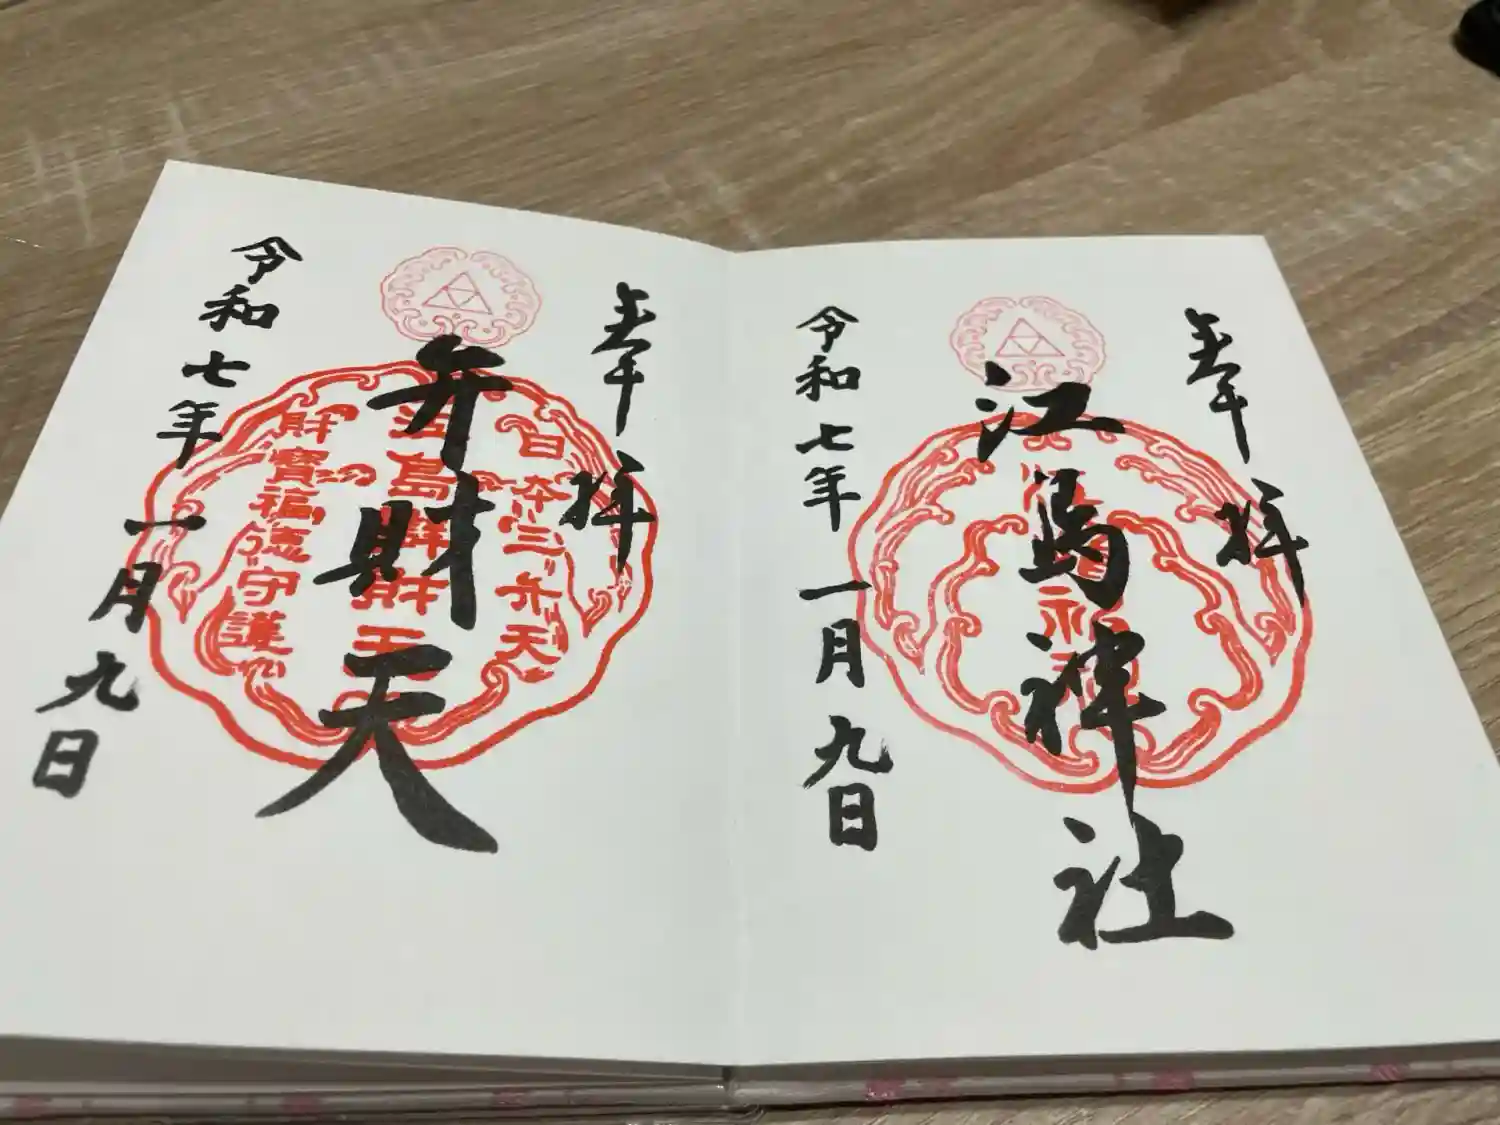 奉拝
江島神社
令和七年一月九日
奉拝
弁財天
日本三弁天
江島辨財天
財寶福徳守護
令和七年一月九日